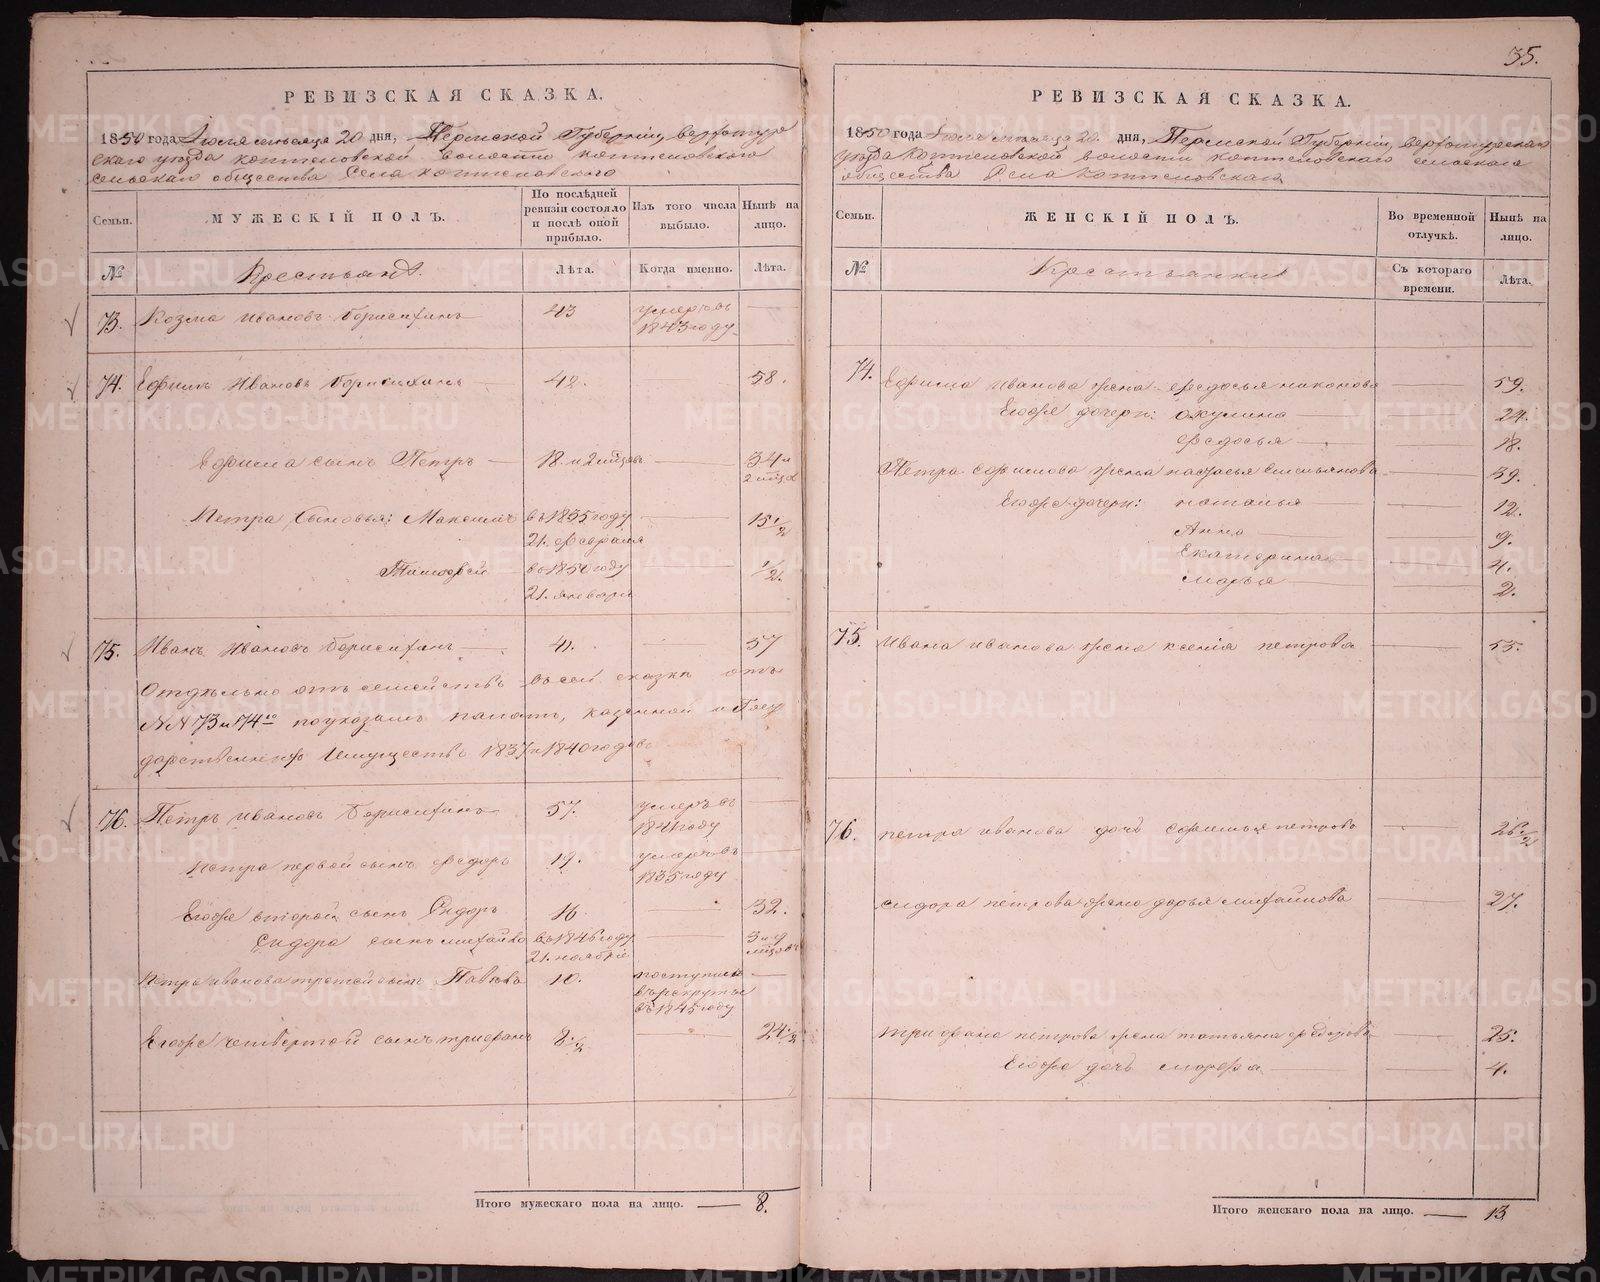 РЕВИЗСКАЯ СКАЗКА.
1850 года Июля месяца 20 дня, Пермской Губерніи, Верхотур
скаго уезда Коптеловской волости Коптеловскаго
сельскаго общества Села Коптеловскаго
Семьи.
МУЖЕСКІЙ ПОЛЪ.
По послѣдней ревизіи состояло и послѣ оной прибыло.
Изъ того числа выбыло.
Нынѣ на лицо.
№
Крестьянъ.
Лѣта.
Когда именно.
Лѣта.
73. Козма Ивановъ Борисихинъ 43 умеръ въ
1843 году
74. Ефимъ Ивановъ Борисихинъ 42. 58.
Ефима сынъ Петръ 18 и 2 мѣца 34 и
2 мѣца
Петра Сыновья: Максимъ въ 1835 году 15 1/2
21. Февраля
Тимофей въ 1850 году 1/2.
21. января
75. Иванъ Ивановъ Борисихинъ 41. 57
Отдѣльно отъ семействъ въ сей сказки отъ
NN 73 и 74го по указамъ палатъ, казенной и Госу
дарственныхъ Имуществъ 1837 и 1840 годовъ
76. Петръ Ивановъ Борисихинъ 57. умеръ въ
1841 году
Петра первой сынъ Федоръ 19. умеръ въ
1835 году
Егоже второй сынъ Сидоръ 16 32.
Сидора сынъ Михайло въ 1846 году 3 и 9
21. ноября мѣцовъ
Петра Иванова третей сынъ Павелъ 10. поступилъ
въ рекруты
въ 1845 году
Егоже четвертой сынъ Трифанъ 8 1/2 24 1/2
Итого мужескаго пола на лицо. 8.
35.
РЕВИЗСКАЯ СКАЗКА.
1850 года Июля месяца 20. дня, Пермской Губерніи, Верхотурскаго
уезда Коптеловской волости Коптеловскаго сельскаго
общества Села Коптеловскаго
Семьи.
ЖЕНСКІЙ ПОЛЪ.
Во временной отлучкѣ.
Нынѣ на лицо.
№
Крестьянки
Съ котораго времени.
Лѣта.
74. Ефима Иванова жена Федосья Никонова 59.
Егоже дочери: Окулина 24.
Федосья 18.
Петра Ефимова жена Настасья Емельянова 39.
Егоже дочери: Наталья 12.
Анна 9.
Екатерина 4.
Марья 2.
75. Ивана Иванова жена Ксенія Петрова 55.
76. Петра Иванова дочь Ефимья Петрова 26 1/2
Сидора Петрова жена Дарья Михайлова 27.
Трифана Петрова жена Татьяна Федорова 25.
Егоже дочь Марфа 4.
Итого женскаго пола на лицо. 13
METRIKI.GASO-URAL.RU